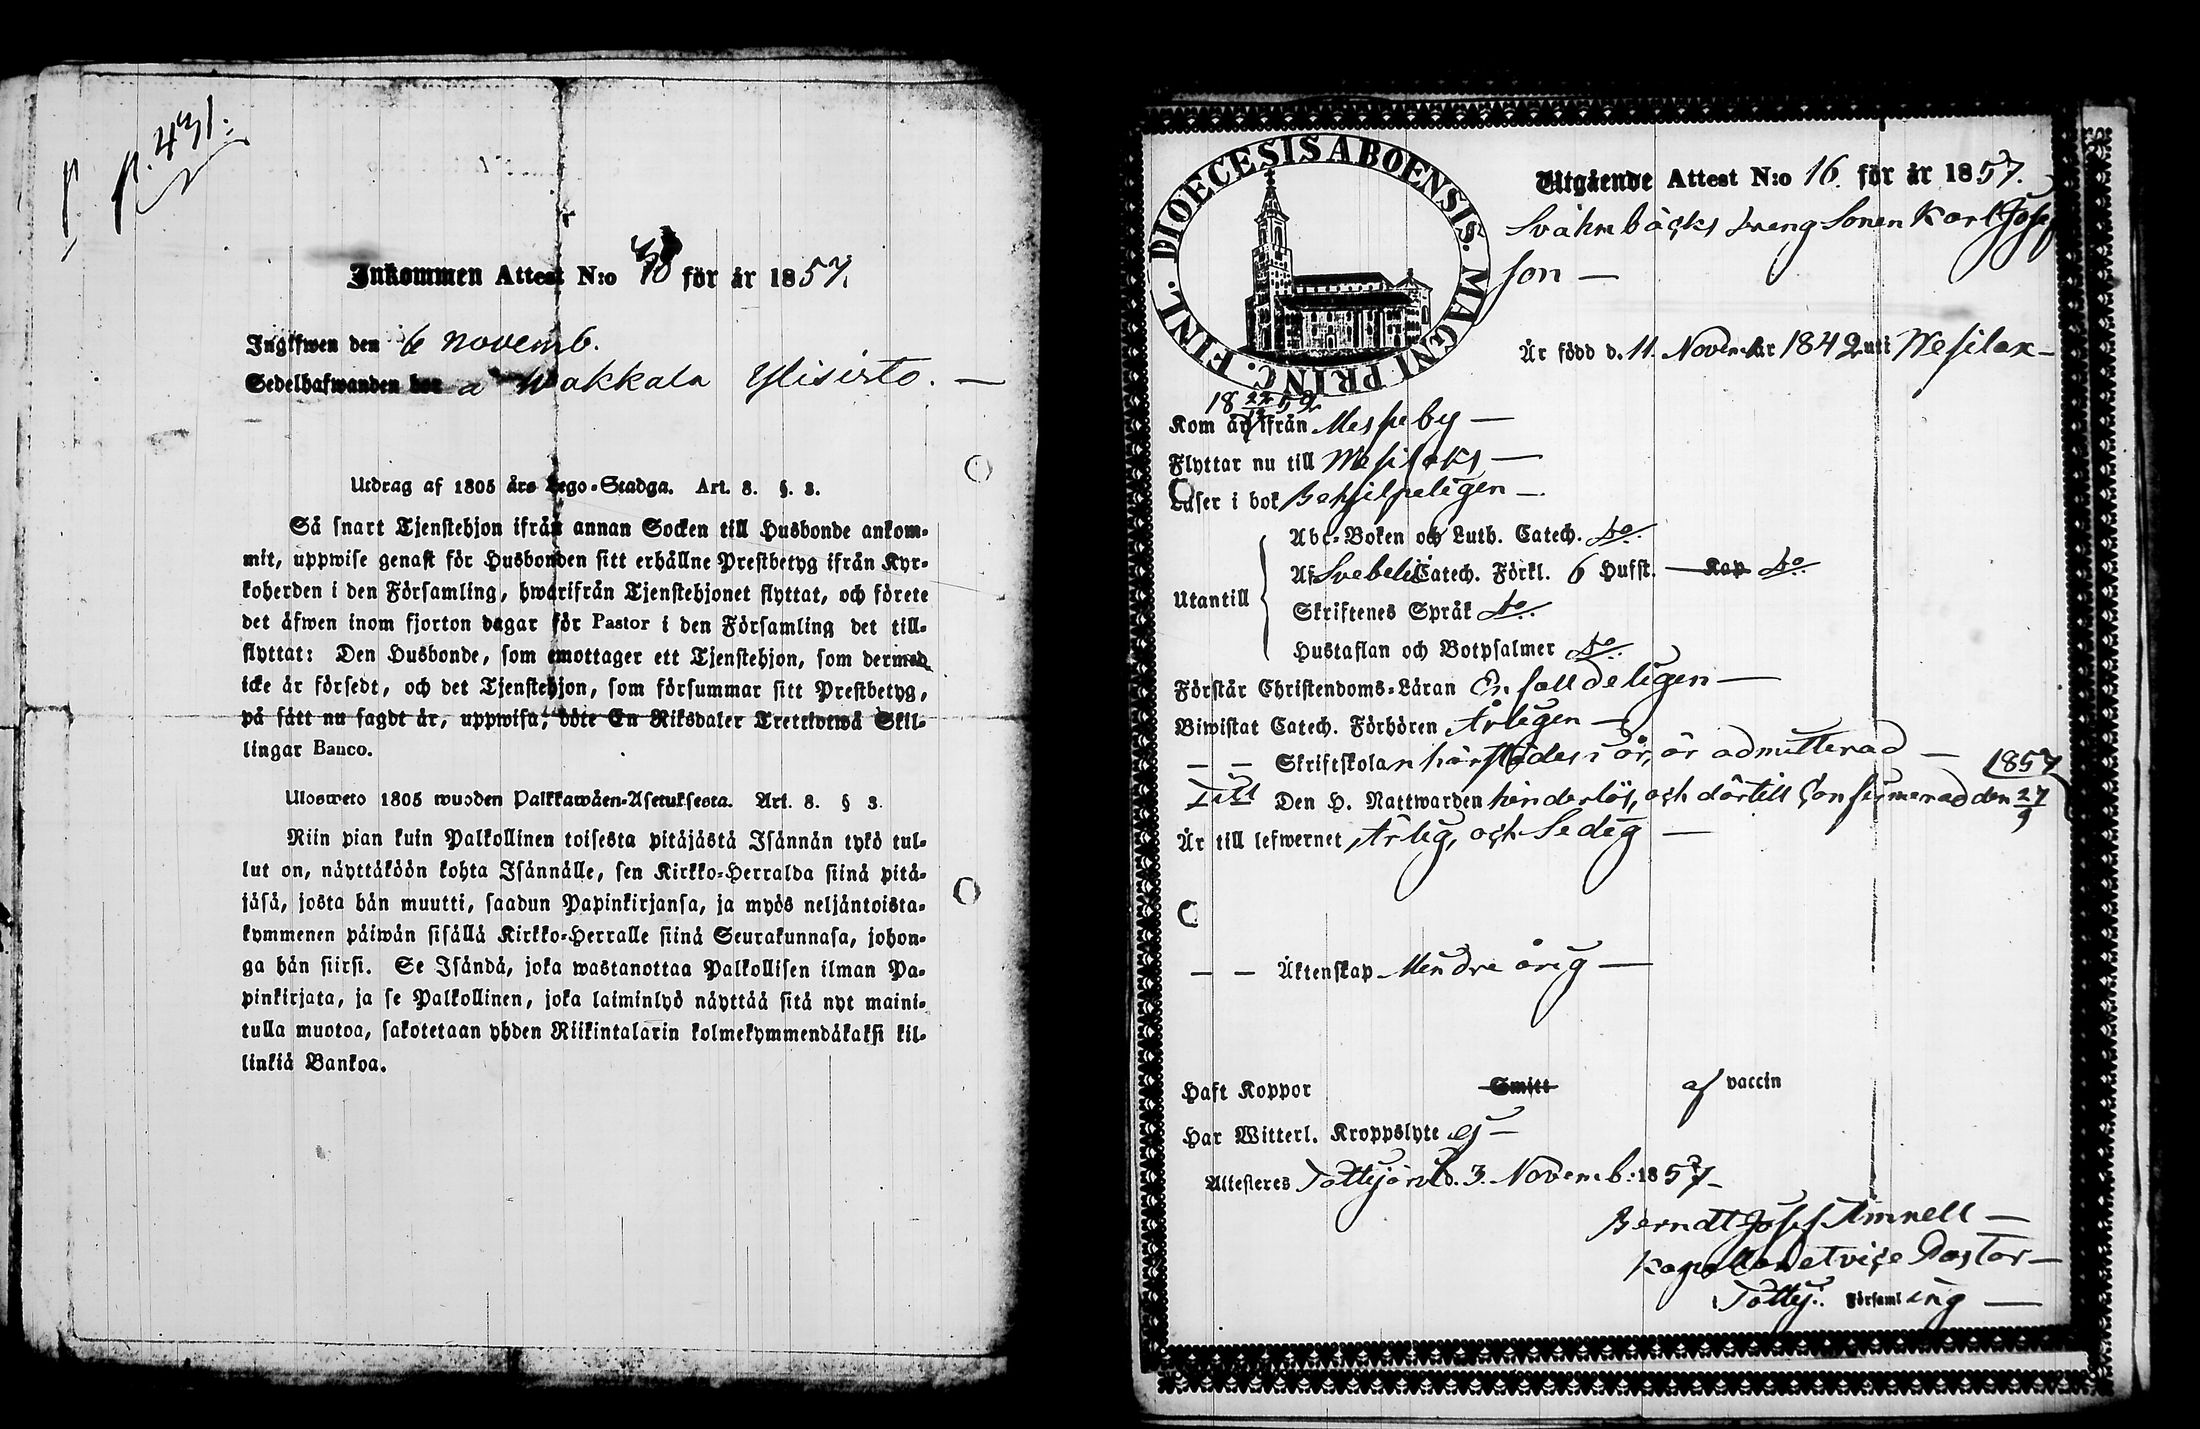 p. p. 431:
Inkommen Attest N:o 30 för år 1857.
Ingifwen den 6 novemb.
Sedelhafwanden bor a Wakkala Ylisirto. —
Utdrag af 1805 års Lego-Stadga. Art. 8. §. 3.
Så snart Tjenstehjon ifrån annan Socken till Husbonde ankom-
mit, uppwise genast för Husbonden sitt erhållne Prestbetyg ifrån Kyr-
koherden i den Församling, hwarifrån Tjenstehjonet flyttat, och förete
det äfwen inom fjorton dagar för Pastor i den Församling det till-
flyttat: Den Husbonde, som emottager ett Tjenstehjon, som dermed
icke är försedt, och det Tjenstehjon, som försummar sitt Prestbetyg,
på sätt nu sagdt är, uppwisa, böte En Riksdaler Trettiotwå Skil-
lingar Banco.
Ulosweto 1805 wuoden Palkkawäen-Asetuksesta. Art. 8. § 3.
Niin pian kuin Palkollinen toisesta pitäjästä Isännän tykö tul-
lut on, näyttäköön kohta Isännälle, sen Kirkko-Herralda siinä pitä-
jäsä, josta hän muutti, saadun Papinkirjansa, ja myös neljäntoista-
kymmenen päiwän sisällä Kirkko-Herralle siinä Seurakunnasa, johon-
ga hän siirsi. Se Isändä, joka wastanottaa Palkollisen ilman Pa-
pinkirjata, ja se Palkollinen, joka laiminlyö näyttää sitä nyt maini-
tulla muotoa, sakotetaan yhden Riikintalarin kolmekymmendäkaksi kil-
linkiä Bankoa.
DIOECESIS ABOENSIS. MAGNI PRINC. FINL.
Utgående Attest N:o 16. för år 1857.
Svahnbäcks dreng Sonen Karl Josef
son —
Är född d. 11. Novem. år 1842 uti Wesilax —
18 22/12 52
Kom år ifrån Messuby —
Flyttar nu till Wesilaks —
Läser i bok Behjelpeligen —
Abc-Boken och Luth. Catech. do.
Utantill
Af Svebelii Catech. Förkl. 6 Hufst. — Kap do.
Skriftenes Språk do.
Hustaflan och Botpsalmer do.
Förstår Christendoms-Läran Enfalldeligen —
Biwistat Catech. Förhören Årligen —
— — Skriftskolan härstädes i år, är admitterad — 1857
Till Den H. Nattwarden hinderlös, och dertill Confirmerad den 27/9
Är till lefwernet Ärlig, och Sedig —
— — Äktenskap Mindre årig —
Haft Koppor Smitt af vaccin
Har Witterl. Kroppslyte ej —
Attesteres Tottijärvi d. 3. Novemb: 1857 —
Berndt Josef Amnell —
Kapellan et vice Pastor —
i Tottij: Församling —